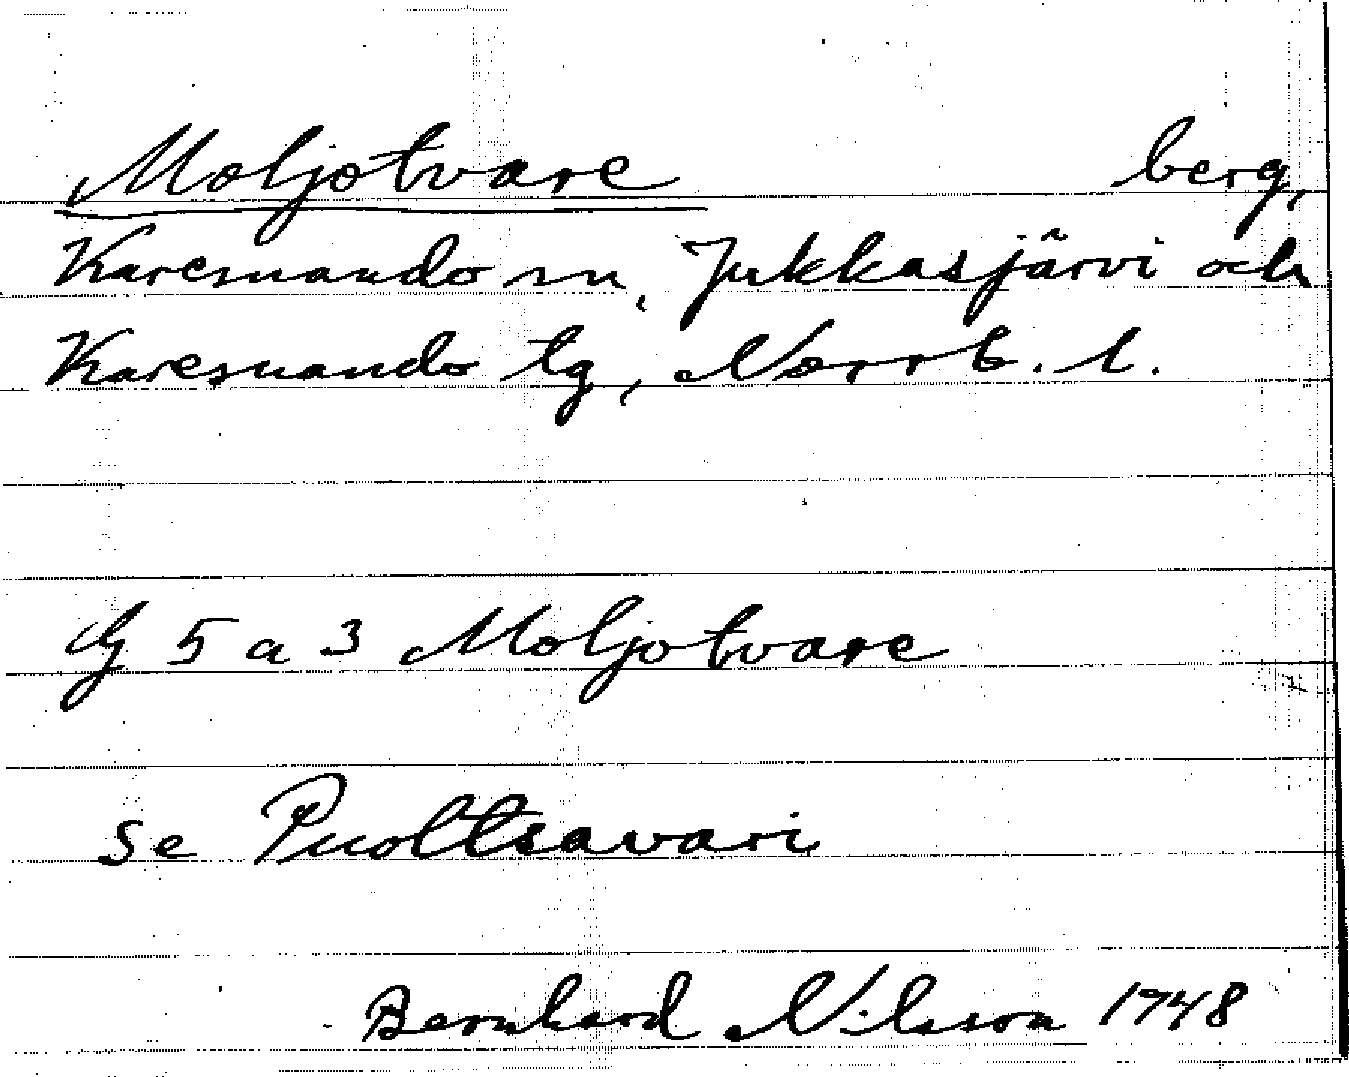 Moljotvare berg,
Karesuando sn, Jukkasjärvi och
Karesuando tg, Norrb. l.
G 5 a 3 Moljotvare
se Puoltsavari
Bernhard Nilsson 1948